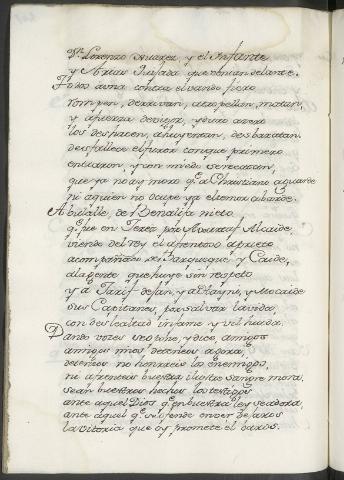 Dn. Lorenzo Suarez y el Infante
y Arias Quijada que venian delante.
Todos a una contra el vando fiero
rompen, derrivan, atropellan, matan,
y a fuerza de vigor, y duro azero
los deshacen, ahuyentan, desbaratan.
desfallece el furor con que primero
entraron, y con miedo se recatan,
que ya no ay moro q.e a Christiano aguarde
ni a quien no ocupe ya el temor cobarde.
Abulalle, de Benalifa nieto
q.e fue en Xerez por Abenraf Alcaide,
viendo del rey el afrentoso aprieto
acompañado de Barquaque, y Caide,
a la gente que huye sin respeto
y a Tarif dejan, y a Zayno, y Mocaide
sus Capitanes, por salvar la vida,
con deslealtad infame y vil huida.
Dando voces se opone, y dice, amigos
amigos mios deteneos agora,
deteneos no honreis los enemigos,
ni afrenteis vuestra ilustre sangre mora.
sean vuestros hechos los testigos
ante aquel Dios q.e en vuestra ley se adora,
ante aquel q.e se ofende en ser dejaros
la vitoria que oy promete el daros.